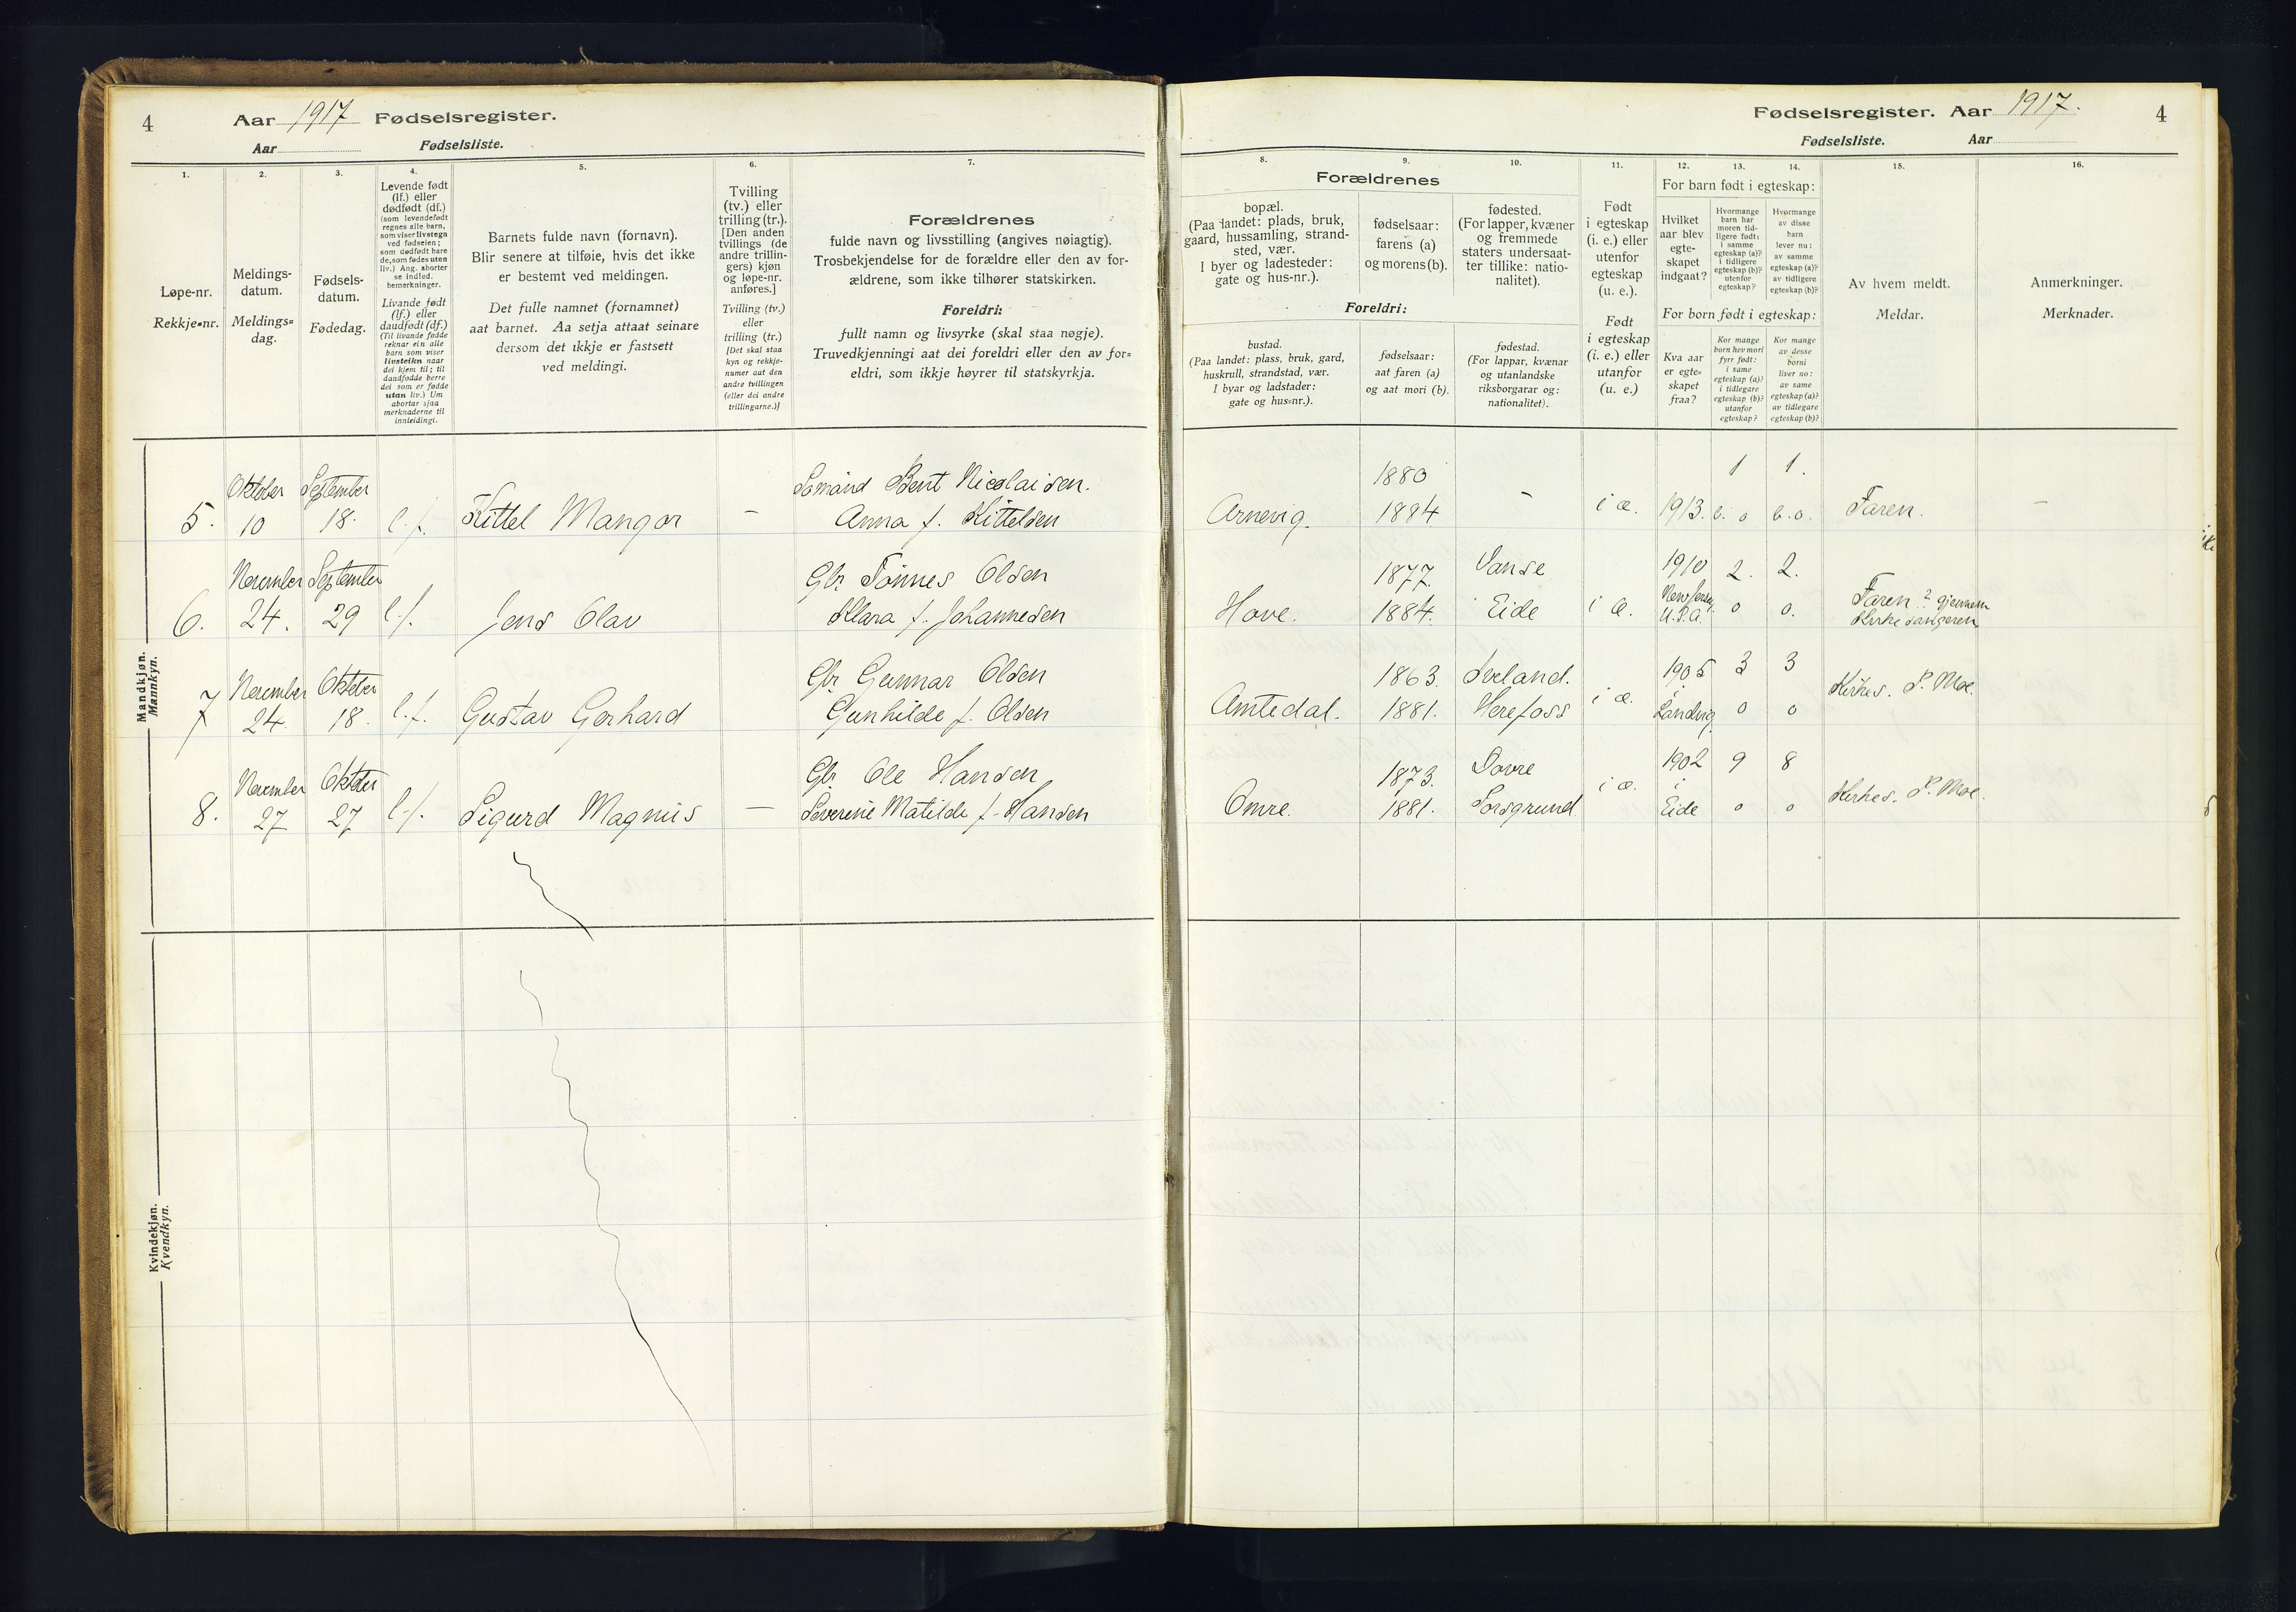 4 Aar 1917 Fødselsregister.
Aar Fødselsliste.
1.
2.
3.
4.
5.
6.
7.
Løpe-nr.
Rekkje=nr.
Meldings-
datum.
Meldings=
dag.
Fødsels-
datum.
Fødedag.
Levende født
(lf.) eller
dødfødt (df.)
(som levendefødt
regnes alle barn,
som viser livstegn
ved fødselen;
som dødfødt bare
de, som fødes uten
liv.) Ang. aborter
se indled.
bemerkninger.
Livande født
(lf.) eller
daudfødt (df.)
(Til livande fødde
reknar ein alle
barn som viser
livsteikn naar
dei kjem til; til
daudfødde berre
dei som er fødde
utan liv.) Um
abortar sjaa
merknaderne til
innleidingi.
Barnets fulde navn (fornavn).
Blir senere at tilføie, hvis det ikke
er bestemt ved meldingen.
Det fulle namnet (fornamnet)
aat barnet. Aa setja attaat seinare
dersom det ikkje er fastsett
ved meldingi.
Tvilling
(tv.) eller
trilling (tr.).
[Den anden
tvillings (de
andre trillin-
gers) kjøn
og løpe-nr.
anføres.]
Tvilling (tv.)
eller
trilling (tr.)
[Det skal staa
kyn og rekkje-
numer aat den
andre tvillingen
(eller dei andre
trillingarne.)]
Forældrenes
fulde navn og livsstilling (angives nøiagtig).
Trosbekjendelse for de forældre eller den av for-
ældrene, som ikke tilhører statskirken.
Foreldri:
fullt namn og livsyrke (skal staa nøgje).
Truvedkjenningi aat dei foreldri eller den av for=
eldri, som ikkje høyrer til statskyrkja.
Mandkjøn.
Mannkyn.
Oktober September Sømand Bent Nicolaisen.
5. 10 18. l.f. Kittel Mangor — Anna f. Kittelsen
November September Gbr Tønnes Olsen
6. 24. 29 l.f. Jens Olav Klara f. Johannesen
November Oktober Gbr Gunnar Olsen
7 24. 18. l.f. Gustav Gerhard Gunhilde f. Olsen
November Oktober Gbr Ole Hansen
8. 27 27 l.f. Sigurd Magnus — Severine Matilde f. Hansen
Kvindekjøn.
Kvendkyn.
Fødselsregister. Aar 1917. 4
Fødselsliste. Aar
8.
9.
10.
11.
12.
13.
14.
15.
16.
Forældrenes
bopæl.
(Paa landet: plads, bruk,
gaard, hussamling, strand-
sted, vær.
I byer og ladesteder:
gate og hus-nr.).
fødselsaar:
farens (a)
og morens (b).
fødested.
(For lapper, kvæner
og fremmede
staters undersaat-
ter tillike: natio-
nalitet).
Foreldri:
bustad.
(Paa landet: plass, bruk, gard,
huskrull, strandstad, vær.
I byar og ladstader:
gate og hus=nr.).
fødselsaar:
aat faren (a)
og aat mori (b).
fødestad.
(For lappar, kvænar
og utanlandske
riksborgarar og:
nationalitet).
Født
i egteskap
(i. e.) eller
utenfor
egteskap
(u. e.).
Født
i egteskap
(i. e.) eller
utanfor
(u. e.)
For barn født i egteskap:
Hvilket
aar blev
egte-
skapet
indgaat?
Hvormange
barn har
moren tid-
ligere født:
i samme
egteskap (a)?
i tidligere
egteskap (b)?
utenfor
egteskap?
Hvormange
av disse
barn
lever nu:
av samme
egteskap (a)?
av tidligere
egteskap (b)?
For born født i egteskap:
Kva aar
er egte=
skapet
fraa?
Kor mange
born hev mori
fyrr født:
i same
egteskap (a)?
i tidlegare
egteskap (b)?
utanfor
egteskap?
Kor mange
av desse
borni
liver no:
av same
egteskap (a)?
av tidlegare
egteskap (b)?
Av hvem meldt.
Meldar.
Anmerkninger.
Merknader.
1880 1 1.
Arnevig. 1884 – i æ. 1913. b. o b. o. Faren. —
1877. Vanse 1910 2. 2.
Hove. 1884. Eide i æ. New Jersey U.S.A. o o. Faren ? gjennem
Kirkesangeren
1863. Iveland. 1905 3 3
Amtedal. 1881. Herefoss i æ. i Landvig o o Kirkes. P. Moe.
1873. Dovre 1902 9 8
Omre. 1881. Porsgrund i æ. i Eide o o Kirkes. P. Moe.